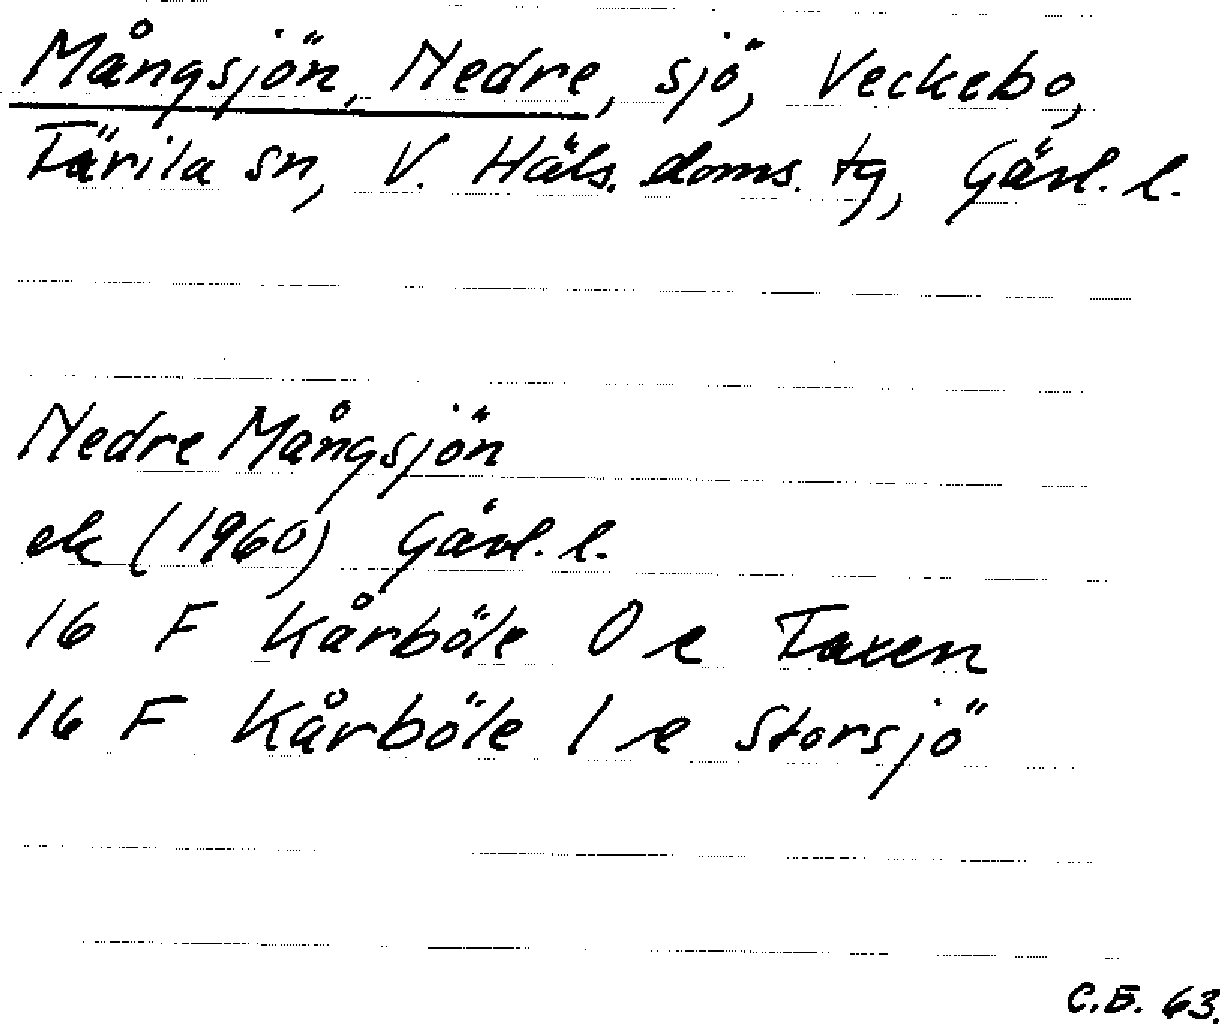 Mångsjön, Nedre, sjö, Veckebo,
Färila sn, V. Häls. doms. tg, Gävl. l.
Nedre Mångsjön
ek (1960) Gävl. l.
16 F Kårböle 0 e Taxen
16 F Kårböle 1 e Storsjö
C.E. 63.